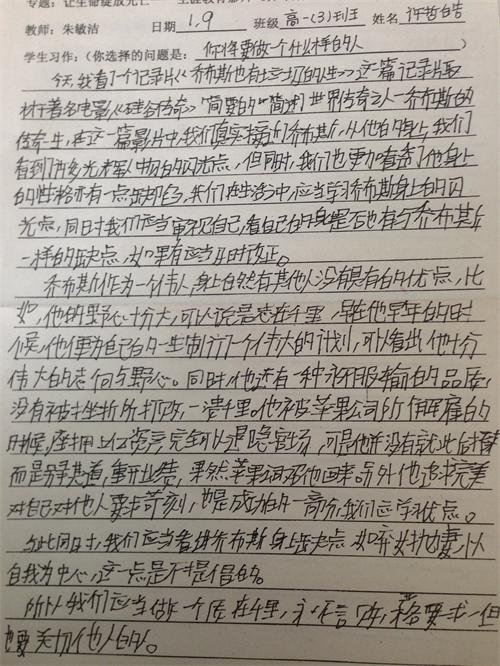 专题：让生命绽放光芒
教师：朱敏洁 日期 1.9 班级 高一(3)班 姓名 许哲皓
学生习作：（你选择的问题是： 你将要做一个什么样的人 ）
今天，我看了一个记录片《乔布斯也有过的人生》这一篇记录片取
材于著名电影《硅谷传奇》简要的简述了世界传奇之人—乔布斯的
传奇一生，在这一篇影片中，我们真实接近了乔布斯，从他的身上，我们
看到了许多光辉人物的闪光点，但同时，我们也更加看清了他身上
的性格亦有一点缺陷，我们在生活中，应当学习乔布斯身上的闪
光点，同时我们应当审视自己，看自己的身是否也有与乔布斯
一样的缺点，如果有应当及时改正。
乔布斯作为一个伟人，身上自然有其他人没有具有的优点，比
如，他的野心十分大，可以说是志在千里，虽在他早年的时
候，他便为自己的一生制订了一个伟大的计划，可以看出他十分
伟大的志向与野心。同时，他还有一种永不服输的品质，
没有被挫折所打败，一溃千里。他被苹果公司所解雇的
时候，座拥上亿资产完全可以退隐官场，可是他并没有就此
而是另寻其道，重开业绩，果然苹果公司把他回来。另外他追求完美
对自己对他人要求苛刻，也是成功的一部分，我们应学优点。
与此同时，我们应当看清乔布斯身上缺点 如弃女抛妻，以
自我为中心，这一点是不提倡的。
所以我们应当做一个志在千里，永不言败，严格要求 但
也要关切他人的人。